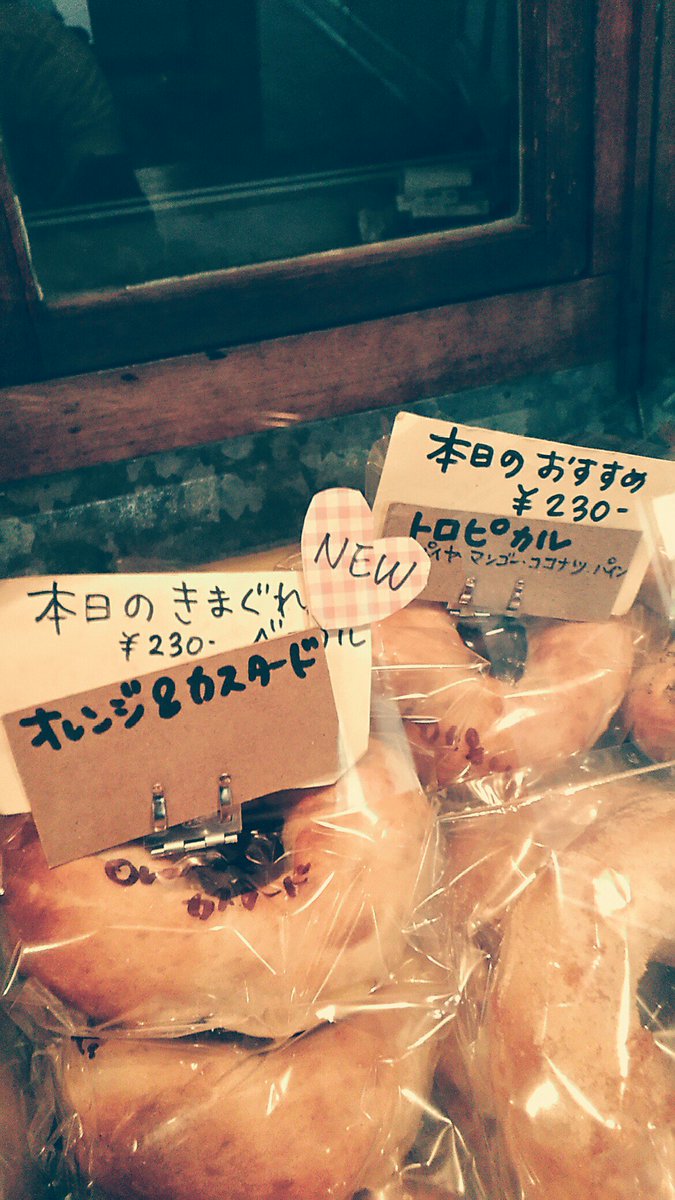 本日のおすすめ
¥230-
トロピカル
パイヤ マンゴー・ココナツ パイン
NEW
本日のきまぐれ
¥230- ベーグル
オレンジ&カスタード